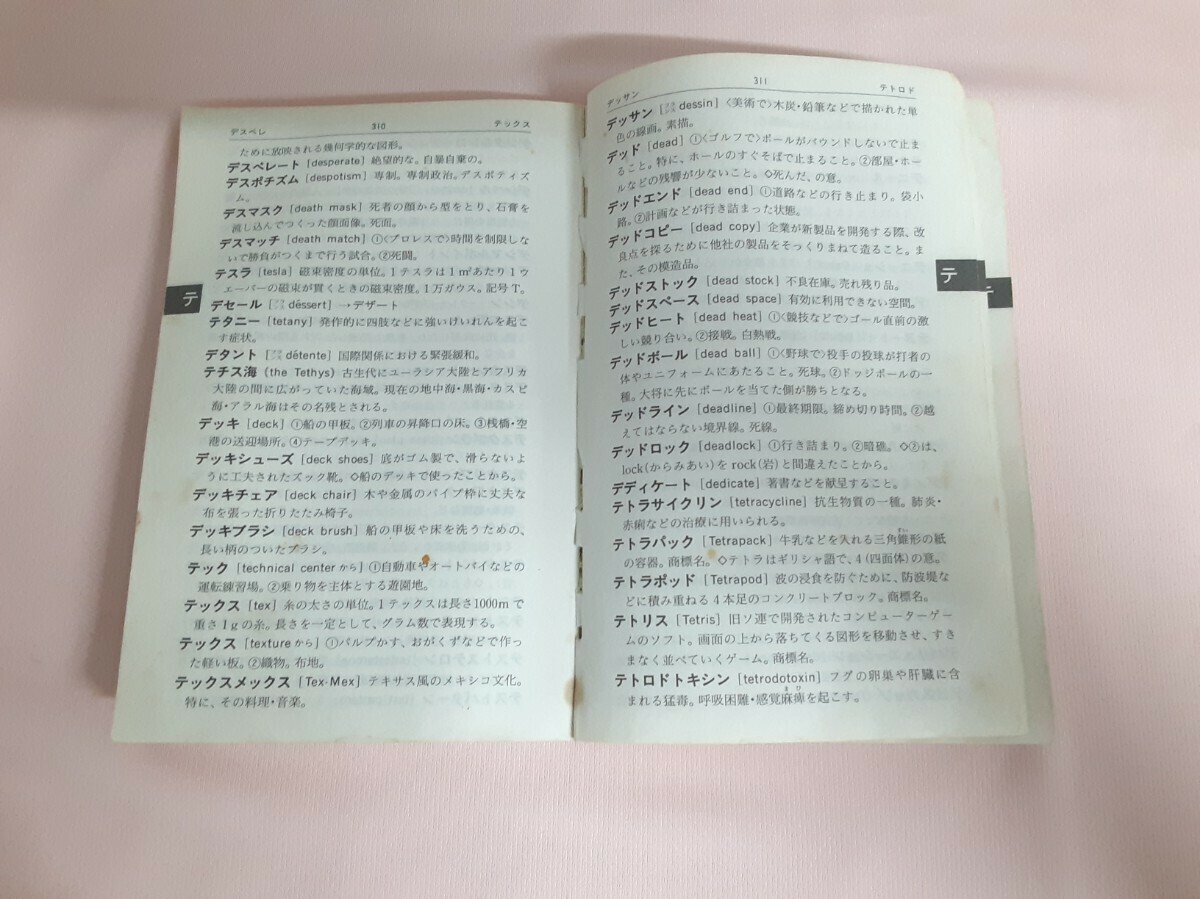 デスペレ 310 テックス
ために放映される幾何学的な図形。
デスペレート [desperate] 絶望的な。自暴自棄の。
デスポチズム [despotism] 専制。専制政治。デスポティズ
ム。
デスマスク [death mask] 死者の顔から型をとり、石膏を
流し込んでつくった顔面像。死面。
デスマッチ [death match] ①〈プロレスで〉時間を制限しな
いで勝負がつくまで行う試合。②死闘。
テスラ [tesla] 磁束密度の単位。1テスラは1㎡あたり1ウ
エーバーの磁束が貫くときの磁束密度。1万ガウス。記号T。
テ
デセール [フランス dessert] →デザート
テタニー [tetany] 発作的に四肢などに強いけいれんを起こ
す症状。
デタント [フランス détente] 国際関係における緊張緩和。
テチス海 (the Tethys) 古生代にユーラシア大陸とアフリカ
大陸の間に広がっていた海域。現在の地中海・黒海・カスピ
海・アラル海はその名残とされる。
デッキ [deck] ①船の甲板。②列車の昇降口の床。③桟橋・空
港の送迎場所。④テープデッキ。
デッキシューズ [deck shoes] 底がゴム製で、滑らないよ
うに工夫されたズック靴。◇船のデッキで使ったことから。
デッキチェア [deck chair] 木や金属のパイプ枠に丈夫な
布を張った折りたたみ椅子。
デッキブラシ [deck brush] 船の甲板や床を洗うための、
長い柄のついたブラシ。
テック [technical centerから] ①自動車やオートバイなどの
運転練習場。②乗り物を主体とする遊園地。
テックス [tex] 糸の太さの単位。1テックスは長さ1000mで
重さ1gの糸。長さを一定として、グラム数で表現する。
テックス [textureから] ①パルプかす、おがくずなどで作っ
た軽い板。②織物。布地。
テックスメックス [Tex-Mex] テキサス風のメキシコ文化。
特に、その料理・音楽。
デッサン 311 テトロド
デッサン [フランス dessin] 〈美術で〉木炭・鉛筆などで描かれた単
色の線画。素描。
デッド [dead] ①〈ゴルフで〉ボールがバウンドしないで止ま
ること。特に、ホールのすぐそばで止まること。②部屋・ホー
ルなどの残響が少ないこと。◇死んだ、の意。
デッドエンド [dead end] ①道路などの行き止まり。袋小
路。②計画などが行き詰まった状態。
デッドコピー [dead copy] 企業が新製品を開発する際、改
良点を探るために他社の製品をそっくりまねて造ること。ま
た、その模造品。
デッドストック [dead stock] 不良在庫。売れ残り品。
デッドスペース [dead space] 有効に利用できない空間。
デッドヒート [dead heat] ①〈競技などで〉ゴール直前の激
しい競り合い。②接戦。白熱戦。
テ
テ
デッドボール [dead ball] ①〈野球で〉投手の投球が打者の
体やユニフォームにあたること。死球。②ドッジボールの一
種。大将に先にボールを当てた側が勝ちとなる。
デッドライン [deadline] ①最終期限。締め切り時間。②越
えてはならない境界線。死線。
デッドロック [deadlock] ①行き詰まり。②暗礁。◇②は、
lock(からみあい)をrock(岩)と間違えたことから。
デディケート [dedicate] 著書などを献呈すること。
テトラサイクリン [tetracycline] 抗生物質の一種。肺炎・
赤痢などの治療に用いられる。
テトラパック [Tetrapack] 牛乳などを入れる三角錐形の紙
の容器。商標名。◇テトラはギリシャ語で、4(四面体)の意。
テトラポッド [Tetrapod] 波の浸食を防ぐために、防波堤な
どに積み重ねる4本足のコンクリートブロック。商標名。
テトリス [Tetris] 旧ソ連で開発されたコンピューターゲー
ムのソフト。画面の上から落ちてくる図形を移動させ、すき
まなく並べていくゲーム。商標名。
テトロドトキシン [tetrodotoxin] フグの卵巣や肝臓に含
まれる猛毒。呼吸困難・感覚麻痺を起こす。